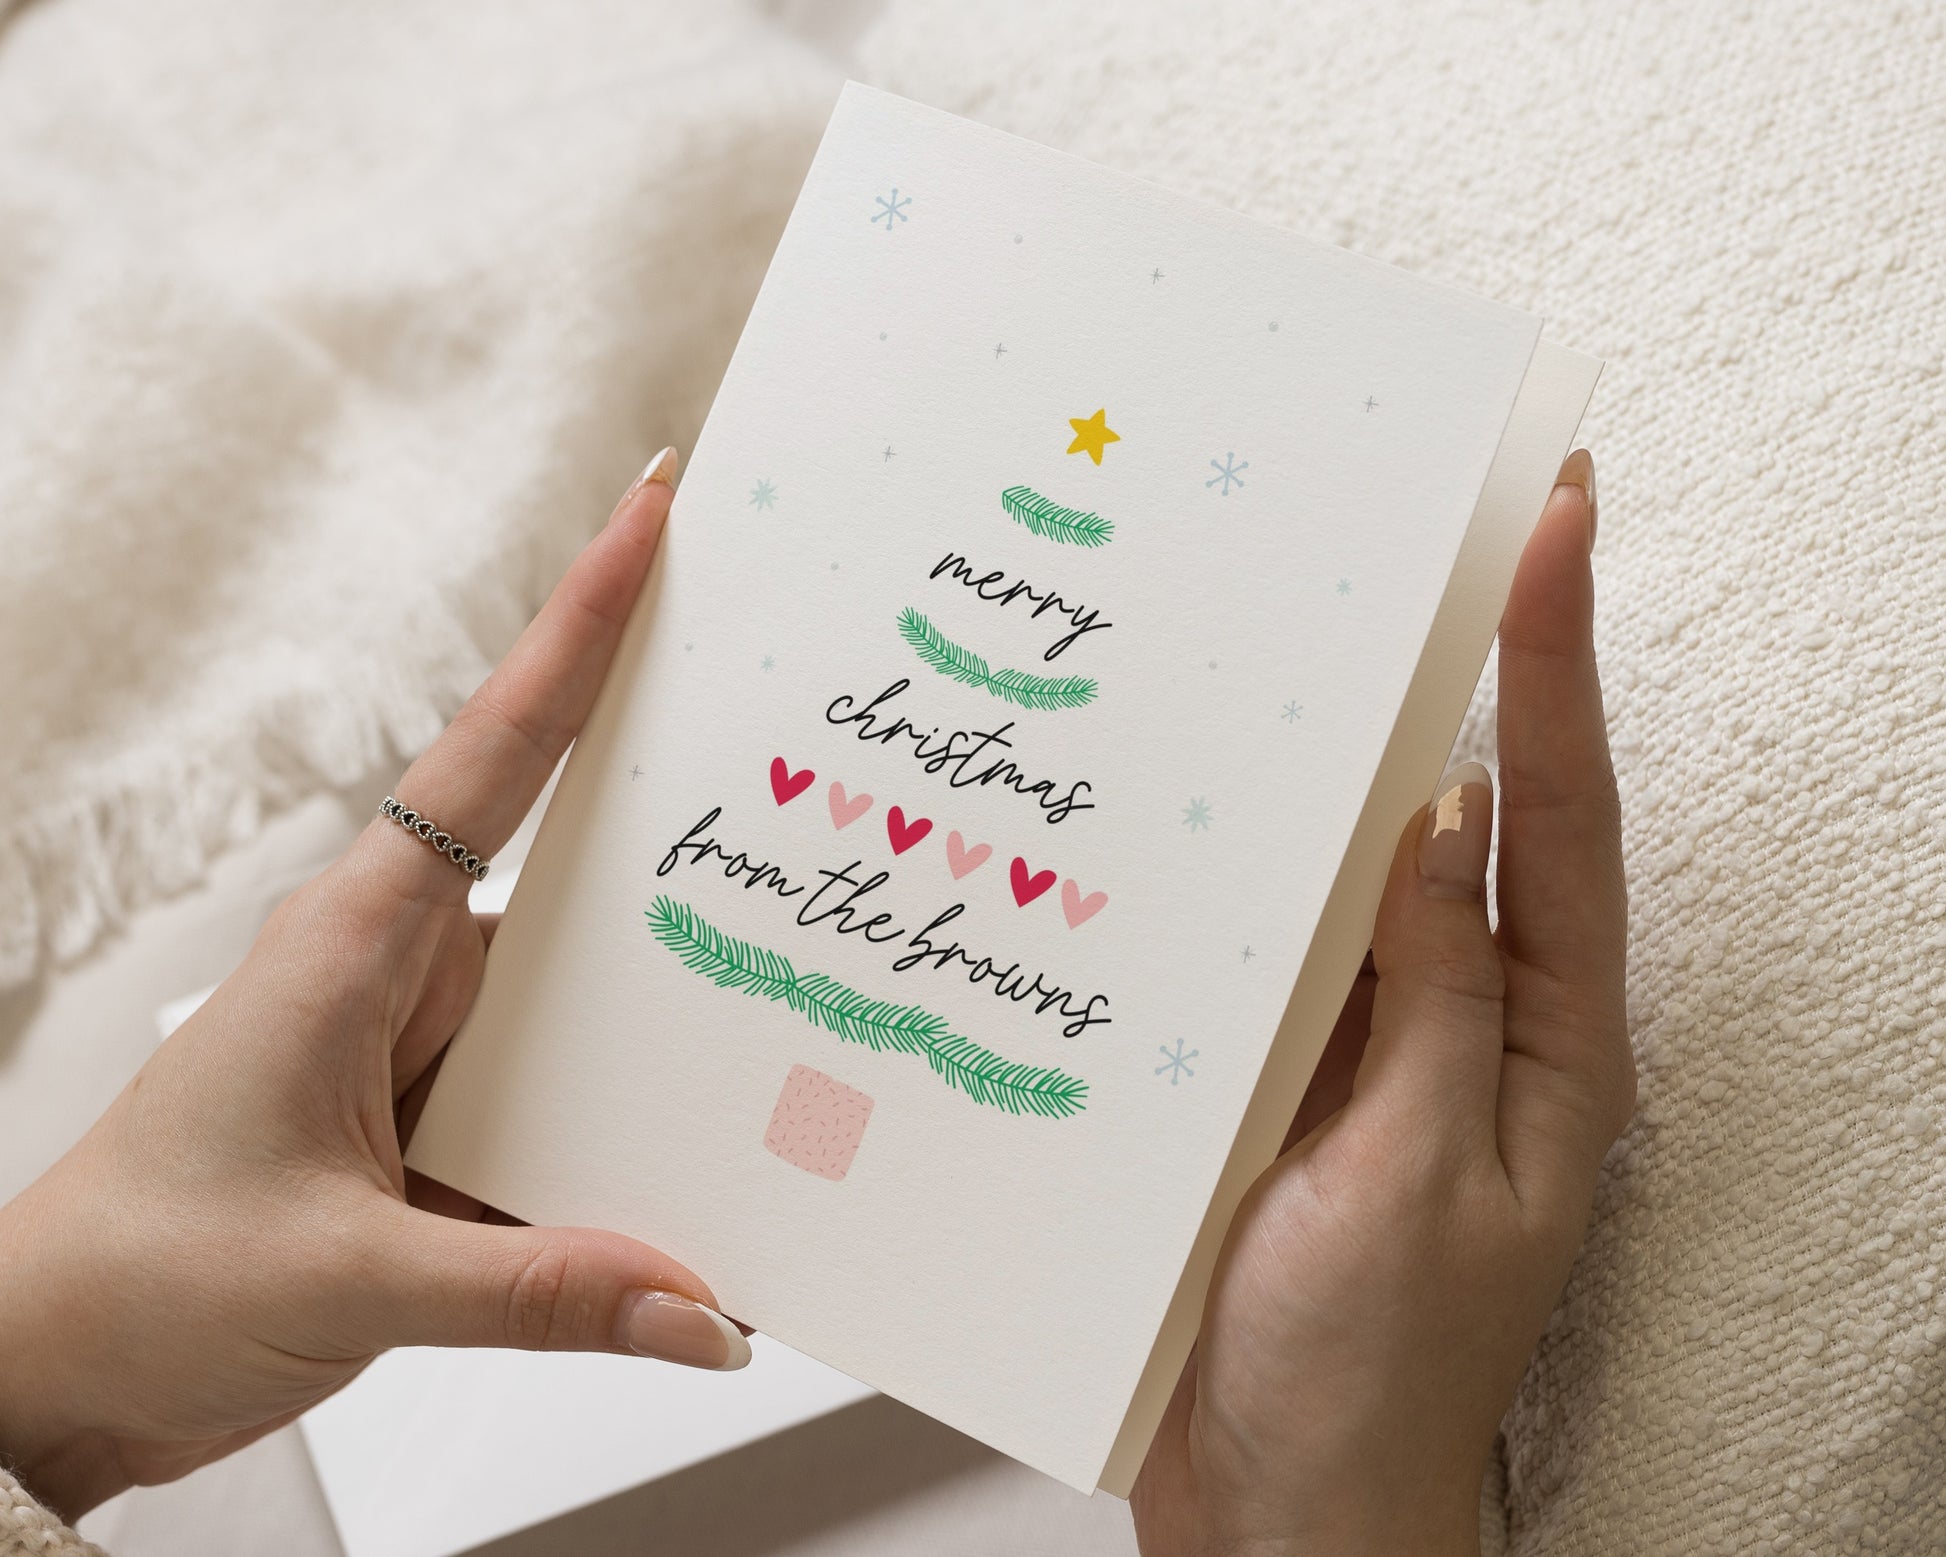 merry
christmas
from the browns